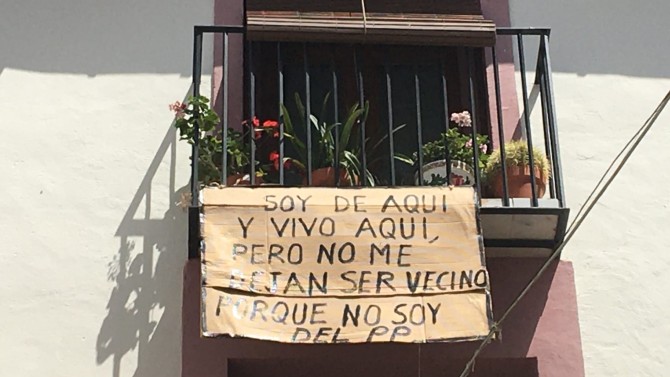 SOY DE AQUI
Y VIVO AQUÍ,
PERO NO ME
DEJAN SER VECINO
PORQUE NO SOY
DEL PP